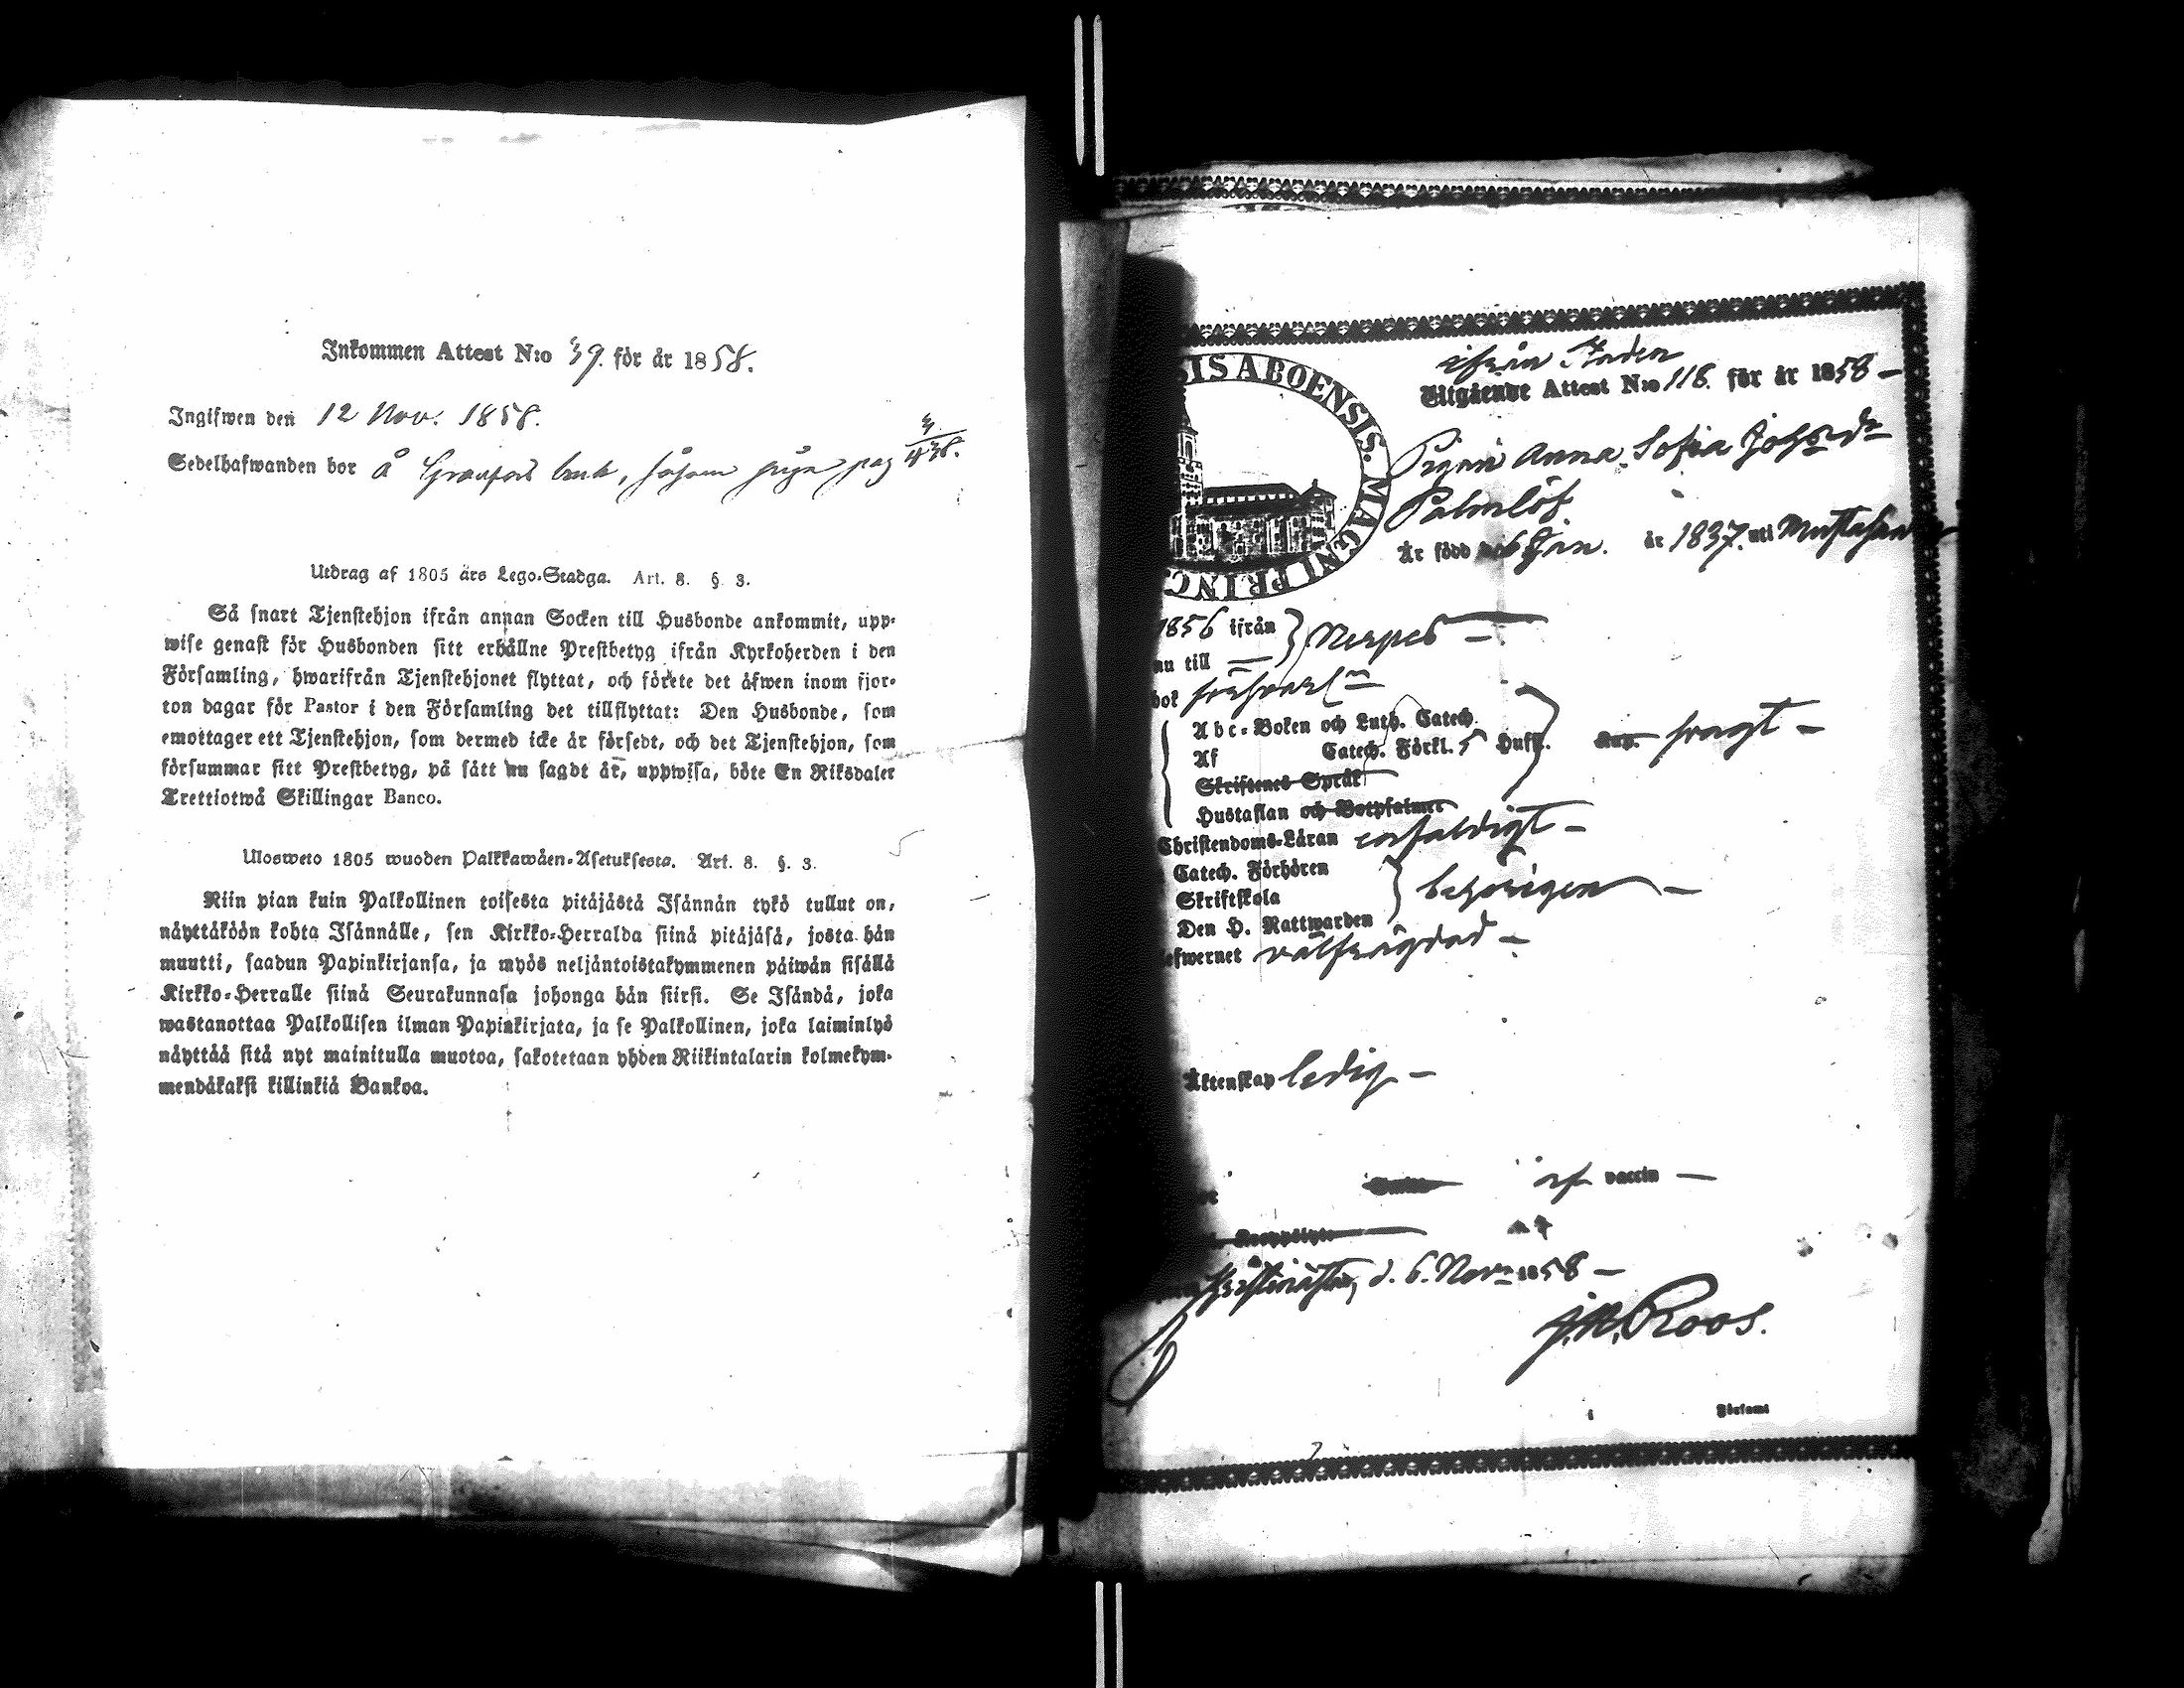 Inkommen Attest N:o 39. för år 1858.
Ingifwen den 12 Nov. 1858.
Sedelhafwanden bor å bruk, såsom piga pag
Utdrag af 1805 års Lego-Stadga. Art. 8. §. 3.
Så snart Tjenstehjon ifrån annan Socken till Husbonde ankommit, upp-
wise genast för Husbonden sitt erhållne Prestbetyg ifrån Kyrkoherden i den
Församling, hwarifrån Tjenstehjonet flyttat, och förete det äfwen inom fjor-
ton dagar för Pastor i den Församling det tillflyttat: Den Husbonde, som
emottager ett Tjenstehjon, som dermed icke är försedt, och det Tjenstehjon, som
försummar sitt Prestbetyg, på sätt nu sagdt är, uppwisa, böte En Riksdaler
Trettiotwå Skillingar Banco.
Ulosweto 1805 wuoden Palkkawäen-Asetuksesta. Art. 8. §. 3.
Niin pian kuin Palkollinen toisesta pitäjästä Isännän tykö tullut on,
näyttäköön kohta Isännälle, sen Kirkko-Herralda siinä pitäjäsä, josta hän
muutti, saadun Papinkirjansa, ja myös neljäntoistakymmenen päiwän sisällä
Kirkko-Herralle siinä Seurakunnasa johonga hän siirsi. Se Isändä, joka
wastanottaa Palkollisen ilman Papinkirjata, ja se Palkollinen, joka laiminlyö
näyttää sitä nyt mainitulla muotoa, sakotetaan yhden Riikintalarin kolmekym-
mendäkaksi killinkiä Bankoa.
SIS ABOENSIS. MAGNI PRINC.
ifrån Staden
Utgående Attest N:o 118. för år 1858 –
Pigan Anna Sofia Johsdr
Palmlöf
Är född 6 Jan. år 1837. uti
1856 ifrån } Nerpes –
nu till –
bok försvarl
Abc-Boken och Luth. Catech.
Af Catech. Förkl. 5 Hufst. svagt –
Skriftenes Språk
Hustaflan och Botpsalmer
Christendoms-Läran enfaldigt –
Catech. Förhören
Skriftskola } behörigen –
Den H. Nattwarden
efwernet välfrägdad –
Äktenskap ledig –
af vaccin –
d. 6. Novr 1858 –
J.A. Roos.
i Församl